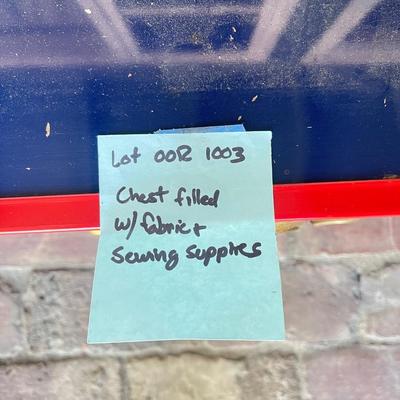 Lot OOR 1003
Chest filled
w/ fabric +
Sewing Supplies